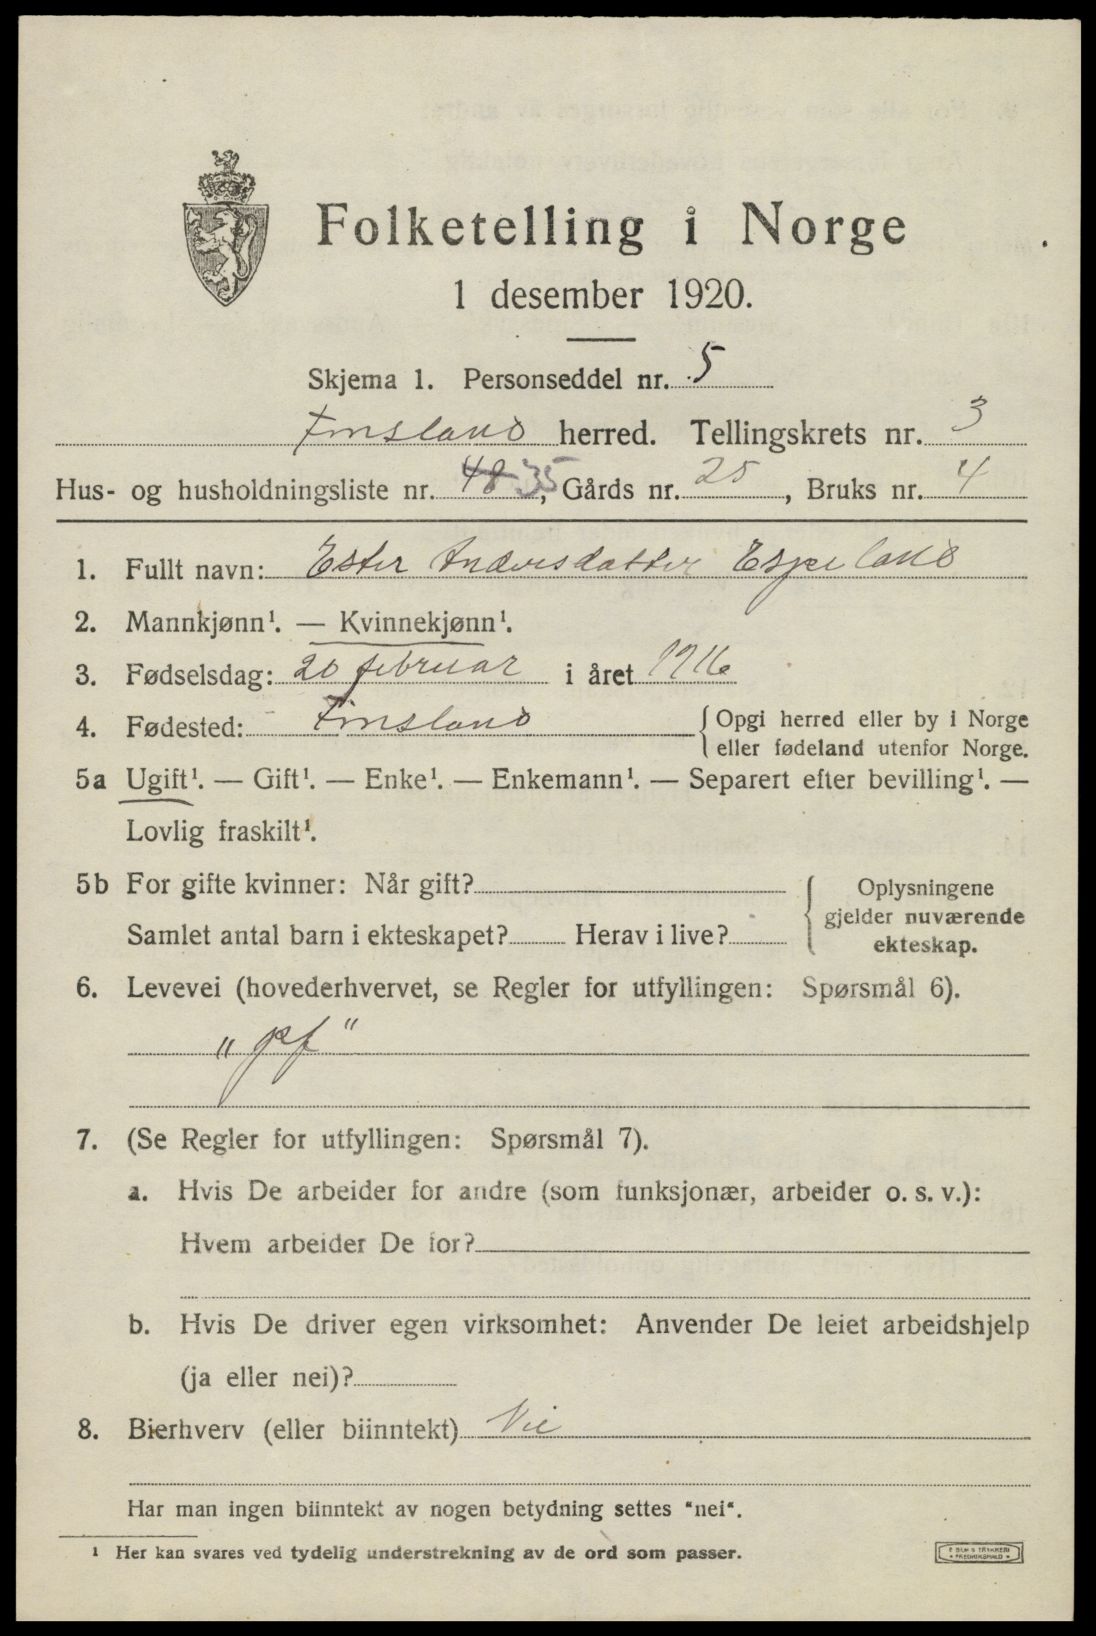 Folketelling i Norge
1 desember 1920.
Skjema 1. Personseddel nr. 5
Finsland herred. Tellingskrets nr. 3
Hus- og husholdningsliste nr. 48 35, Gårds nr. 25, Bruks nr. 4
1. Fullt navn: Ester Andersdatter Espeland
2. Mannkjønn¹. — Kvinnekjønn¹.
3. Fødselsdag: 20 februar i året 1916
4. Fødested: Finsland {Opgi herred eller by i Norge
eller fødeland utenfor Norge.
5a Ugift¹. — Gift¹. — Enke¹. — Enkemann¹. — Separert efter bevilling¹. —
Lovlig fraskilt¹.
5b For gifte kvinner: Når gift?
Samlet antal barn i ekteskapet? Herav i live?
Oplysningene
gjelder nuværende
ekteskap.
6. Levevei (hovederhvervet, se Regler for utfyllingen: Spørsmål 6).
7. (Se Regler for utfyllingen: Spørsmål 7).
a. Hvis De arbeider for andre (som funksjonær, arbeider o. s. v.):
Hvem arbeider De for?
b. Hvis De driver egen virksomhet: Anvender De leiet arbeidshjelp
(ja eller nei)?
8. Bierhverv (eller biinntekt) Nei
Har man ingen biinntekt av nogen betydning settes "nei".
¹ Her kan svares ved tydelig understrekning av de ord som passer.